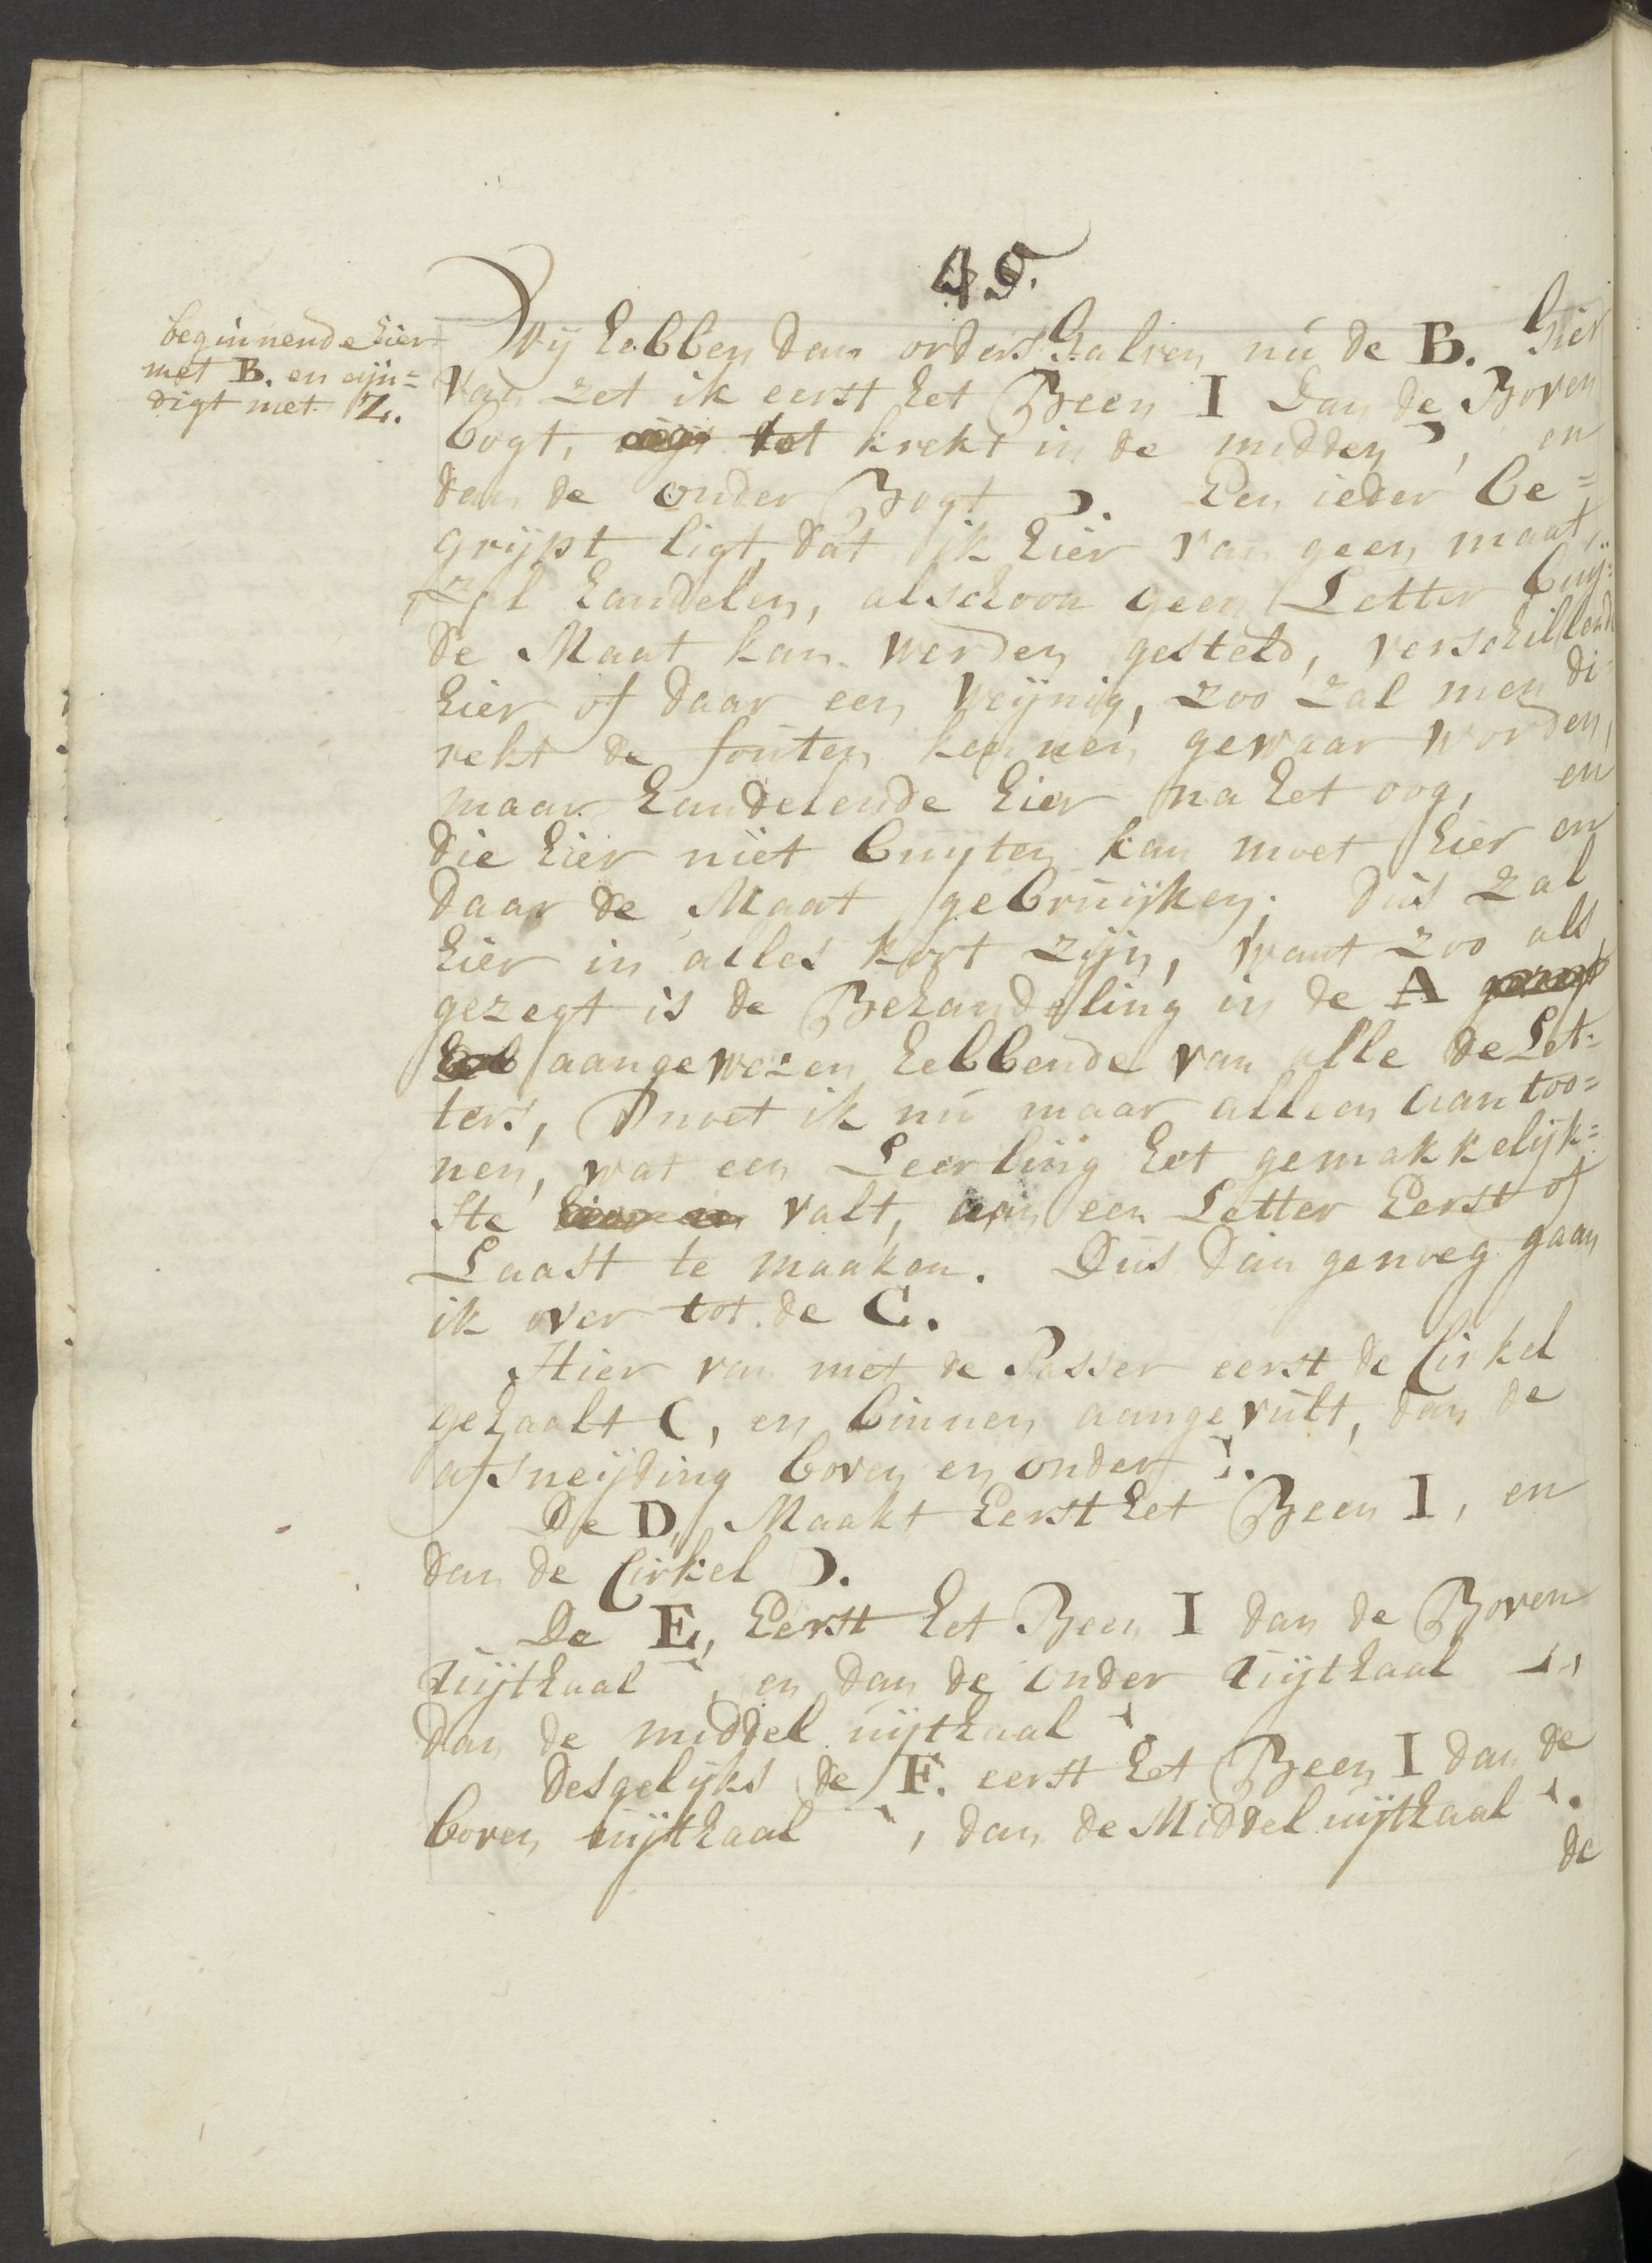 45.
beginnende hier
met B. en eijn=
digt met Z.
Wij hebben dan orders halven nú de B. hier
van zet ik eerst het Been I dan de Boven
bogt, tot krekt in de midden , en
dan de onder Bogt . Een ieder be=
grijpt ligt, dat ik hier van geen maat,
zal handelen, alschoon geen Letter buij:
de Maat kan werden gesteld, verschillende
hier of daar een weijnig, zoo zal men di
rekt de fouten kennen gewaar worden,
maar handelende hier na het oog, en
die hier niet buijten kan moet hier en
daar de Maat gebruijken. Dus zal
hier in alles kort zijn, want zoo als
gezegt is de Behandeling in de A
aangewezen hebbende van alle de Let=
ters, moet ik nú maar alleen aantoo=
nen, wat een Leerling het gemakkelijk=
ste valt, aan een Letter Eerst of
Laast te maaken. Dus dan genoeg gaan
ik over tot de C.
Hier van met de Passer eerst de Cirkel
gehaalt C, en binnen aangevult, dan de
afsneijding boven en onder .
De D, Maakt Eerst het Been I, en
dan de Cirkel .
De E, Eerst het Been I dan de Boven
uijthaal , en dan de onder uijthaal ,
dan de middel uijthaal
desgelijks de F. eerst het Been I dan de
boven uijthaal , dan de Middel uijthaal .
de